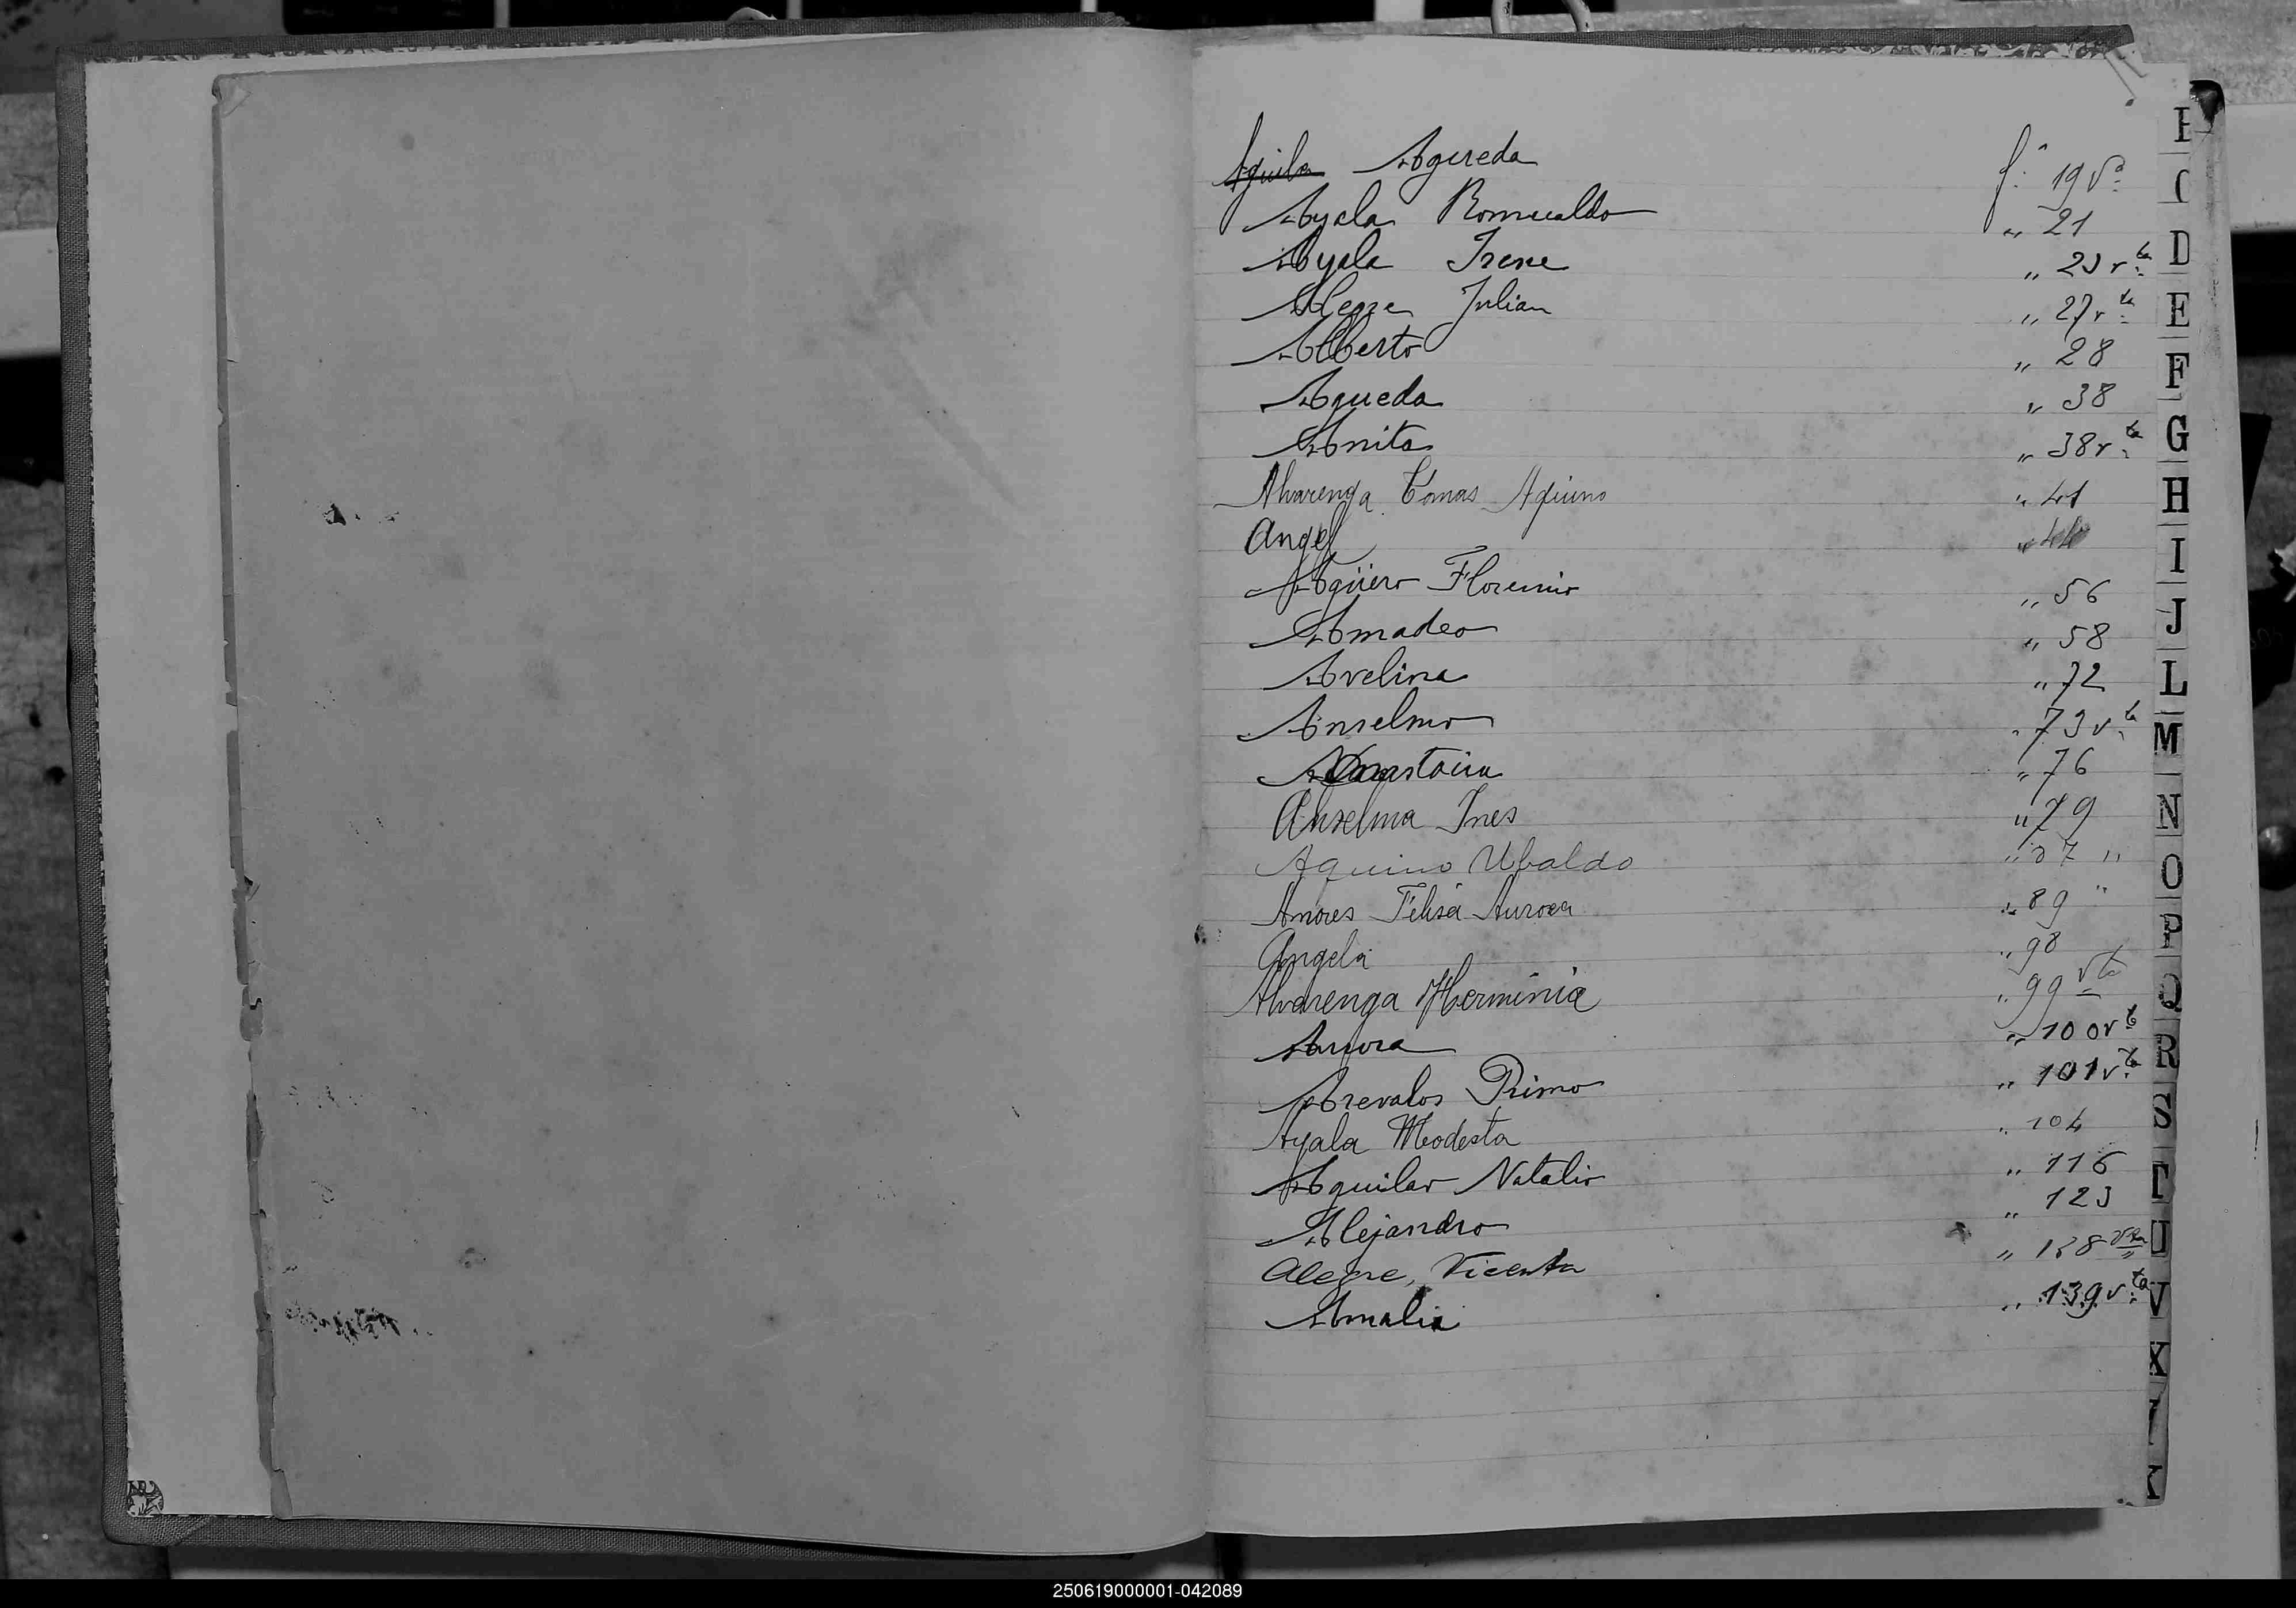 ~~Aguila~~ Agueda f.º 19 Vª
Ayala Romualdo " 21
Ayala Irene " 23 vta
Alegre Julian " 27 vta
Alberto " 28
Agueda " 38
Anita " 38 vta
Alvarenga Tomas Aquino " 41
Angel " 44
Agüero Florencio " 56
Amadeo " 58
Avelina " 72
Anselmo " 73 vta
Anastacia " 76
Anselma Ines " 79
Aquino Ubaldo " 87 "
Amores Felisa Aurora " 89 "
Angela " 98
Alvarenga Herminia " 99 vta
Aurora " 100 vta
Arevalos Primo " 101 vta
Ayala Modesta " 104
Aguilar Natalio " 116
Alejandro " 123
Alegre, Vicenta " 138 vta
Amalia " 139 vta
D
E
F
G
H
I
J
L
M
N
O
P
Q
R
S
T
U
V
X
250619000001-042089